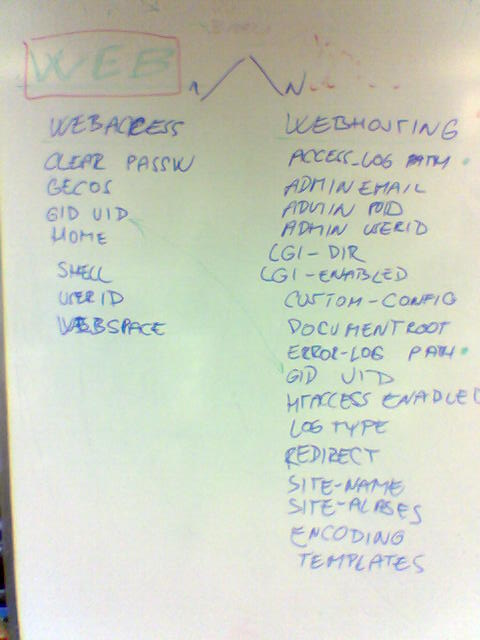 WEB
1 N
WEBACCESS
CLEAR PASSW
GECOS
GID UID
HOME
SHELL
USERID
WEBSPACE
WEBHOSTING
ACCESS-LOG PATH
ADMIN EMAIL
ADMIN
ADMIN USERID
CGI-DIR
CGI-ENABLED
CUSTOM-CONFIG
DOCUMENTROOT
ERROR-LOG PATH
GID UID
HTACCESS ENABLED
LOGTYPE
REDIRECT
SITE-NAME
SITE-ALIASES
ENCODING
TEMPLATES